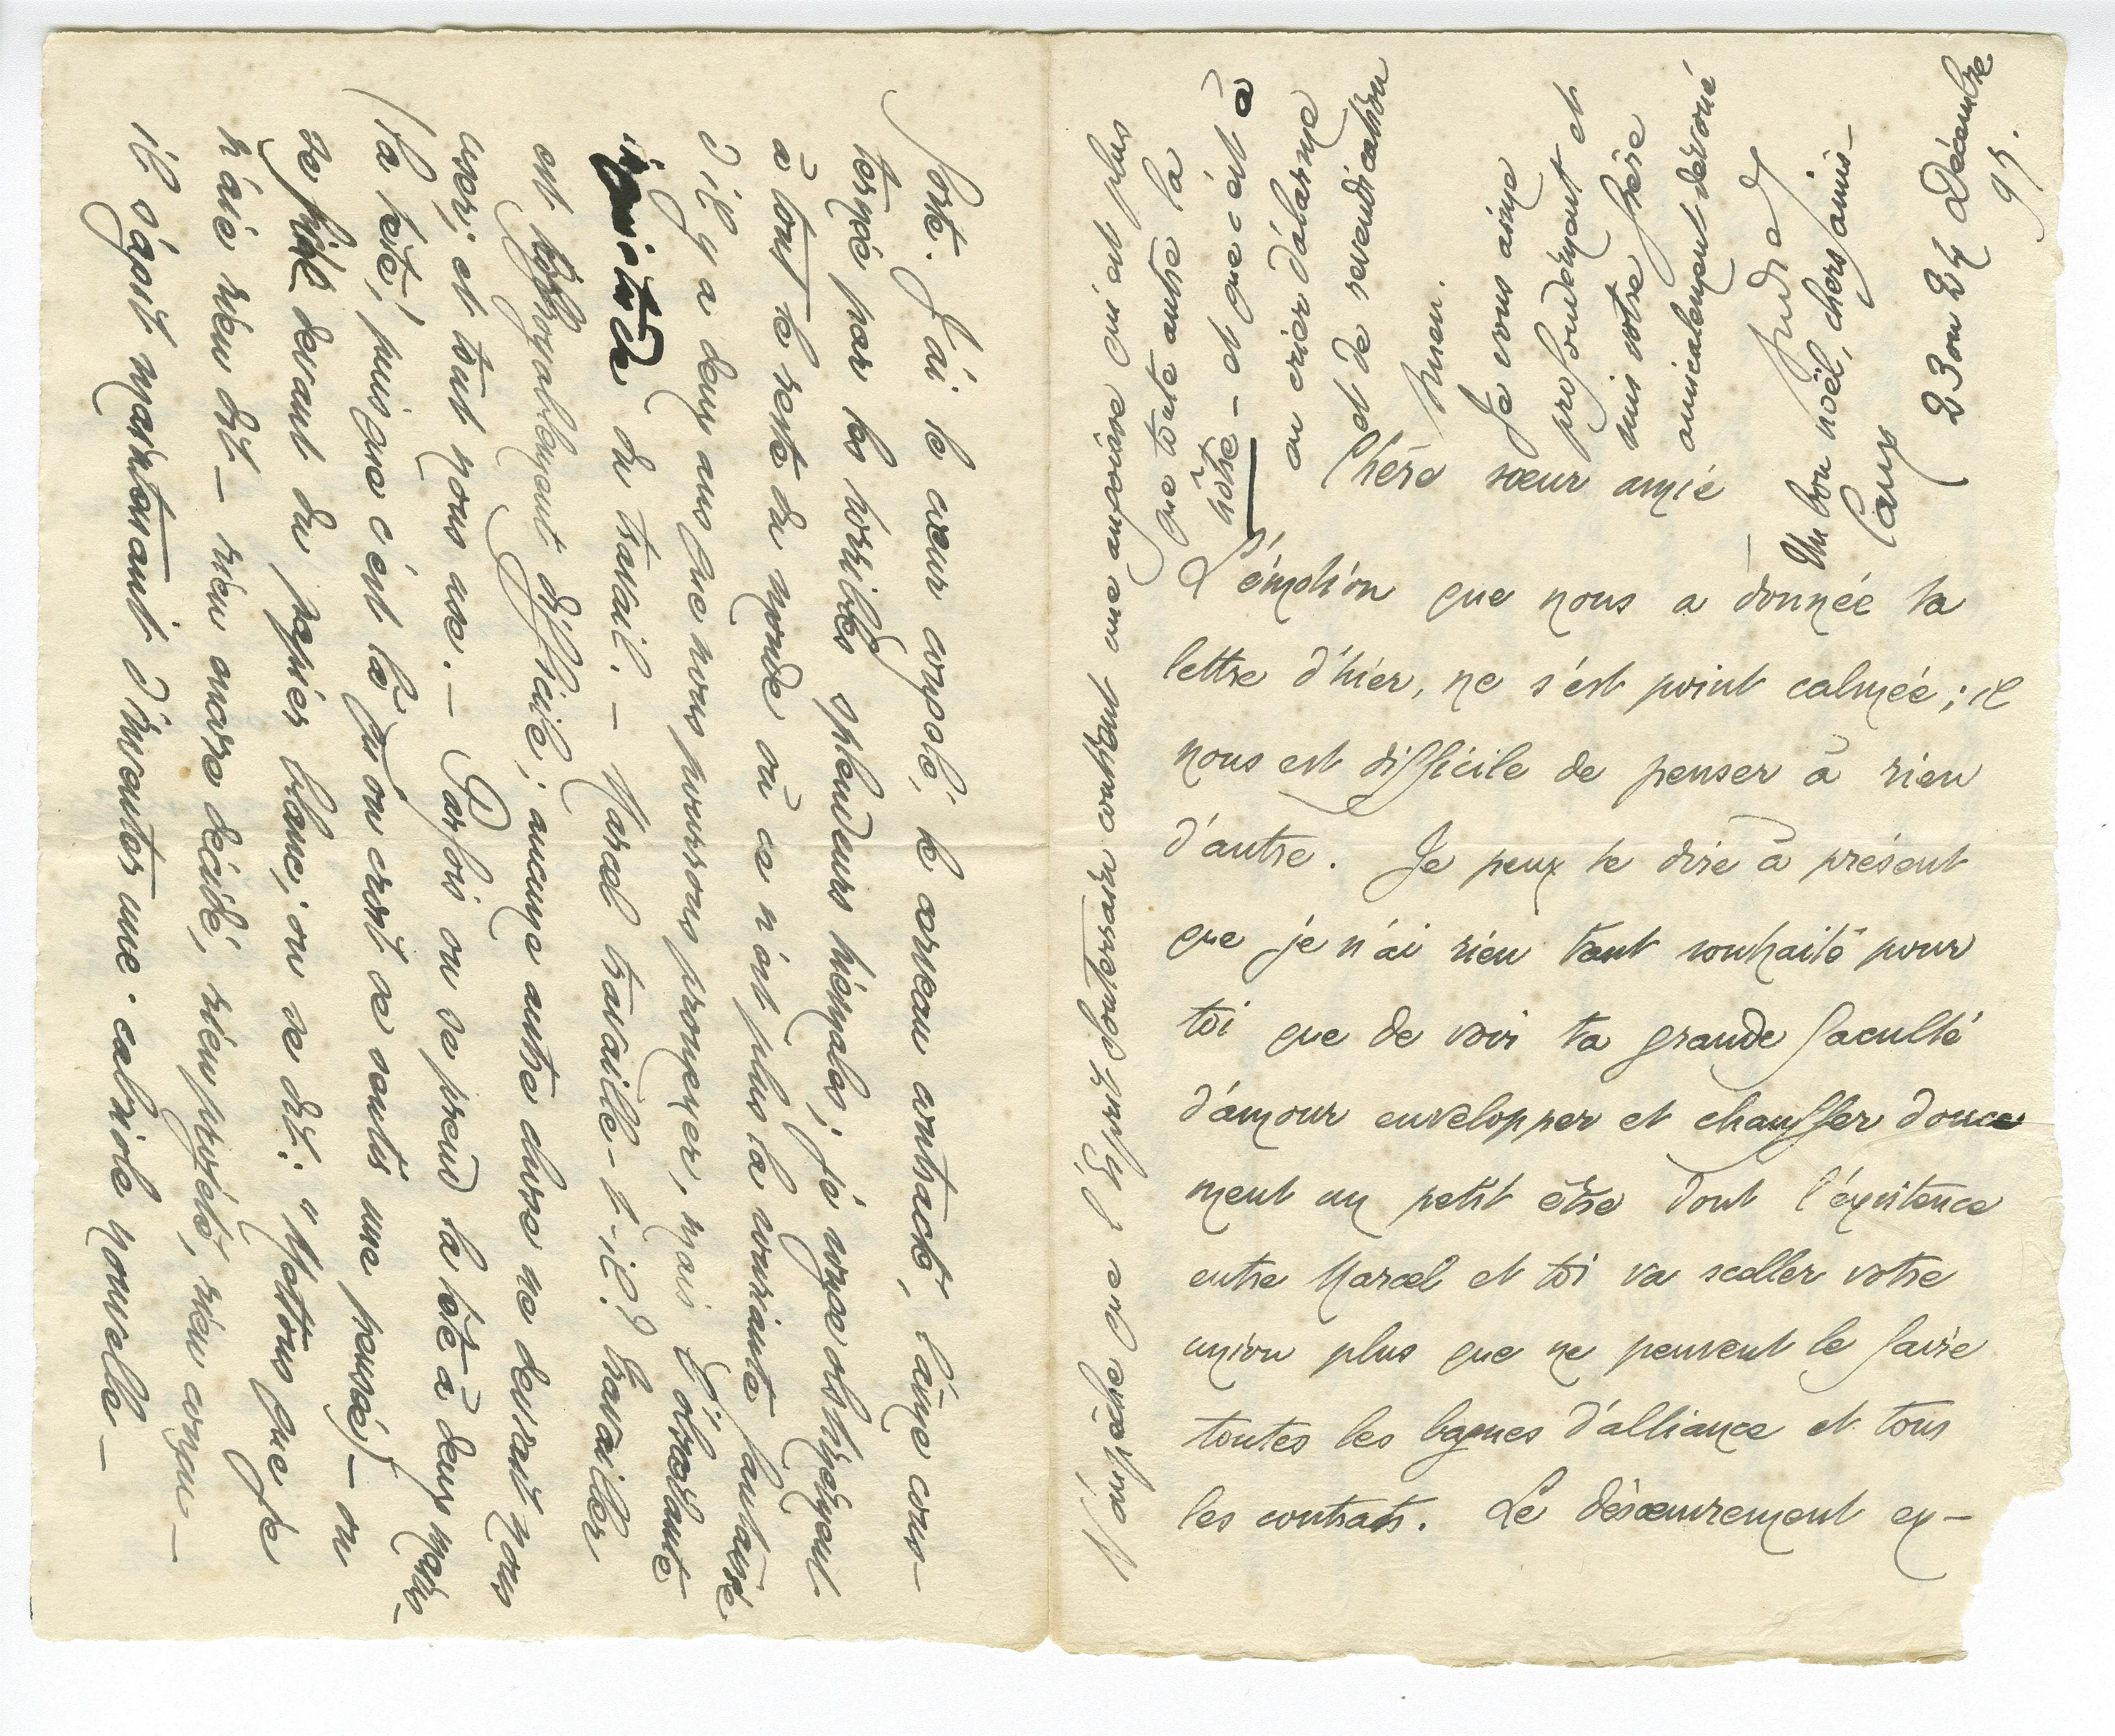 Caux
23 ou 24 Décembre
95.
Un bon noël, chers amis –
Chère sœur amie
L'émotion que nous a donnée ta
lettre d'hier, ne s'est point calmée ; il
nous est difficile de penser à rien
d'autre. Je peux te dire à présent
que je n'ai rien tant souhaité pour
toi que de voir ta grande faculté
d'amour envelopper et chauffer douce
ment un petit être dont l'existence
entre Marcel et toi va sceller votre
union plus que ne peuvent le faire
toutes les bagues d'alliance et tous
les contrats. Le désœuvrement ex–
porte. J'ai le cœur congelé, le cerveau contracté, l'âme cons–
ternée par les horribles splendeurs hiémales ; je songe obstinément
à tout le reste du monde où ce n'est plus la souriante fantaisie
d'il y a deux ans que nous pourrons promener, mais l'obsédante
inquiétude du travail. – Marcel travaille-t-il ? travailler
est effroyablement difficile ; aucune autre chose ne devrait nous
user ; et tout nous use. – Parfois on se prend la tête à deux mains –
(la tête, puisque c'est là qu'on croit se sentir une pensée) – on
se fige devant du papier blanc ; on se dit : "Mettons que je
n'aie rien dit – rien encore décidé, rien projeté, rien conçu –
il s'agit maintenant d'inventer une cabriole nouvelle –
N'empêche que l'Egypte souterraine contient une angoisse qui est plus
que toute autre la
nôtre – et que c'est à
en crier d'alarme
et de revendication
Amen.
Je vous aime
profondément et
suis votre frère
amicalement dévoué
André